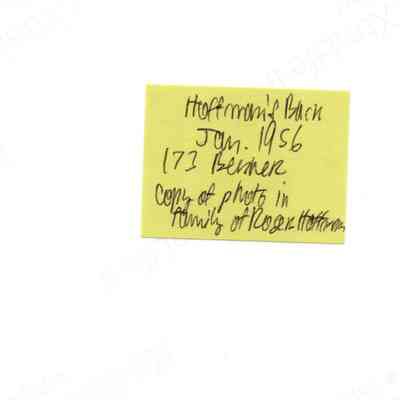 Hoffman's Back
Jan. 1956
173 Benner
Copy of photo in
family of Roger Hoffman